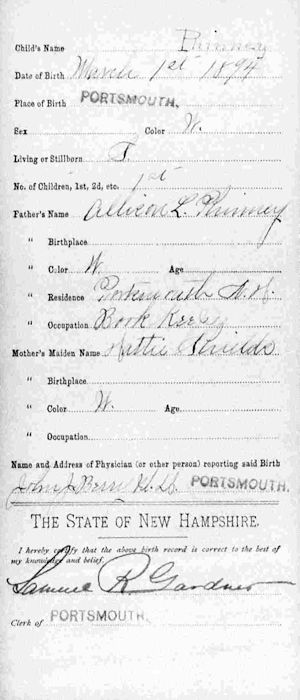 Child's Name Phinney
Date of Birth March 1st 1894
Place of Birth PORTSMOUTH,
Sex Color W.
Living or Stillborn
No. of Children, 1st, 2d, etc. 1st
Father's Name Allison L. Phinney
" Birthplace
" Color W. Age
" Residence Portsmouth N.H.
" Occupation Book Keeper
Mother's Maiden Name Hattie Shields
" Birthplace
" Color W. Age
" Occupation
Name and Address of Physician (or other person) reporting said Birth
John J. Berry M.D. PORTSMOUTH.
THE STATE OF NEW HAMPSHIRE.
I hereby certify that the above birth record is correct to the best of
my knowledge and belief.
Samuel R. Gardner
Clerk of PORTSMOUTH.